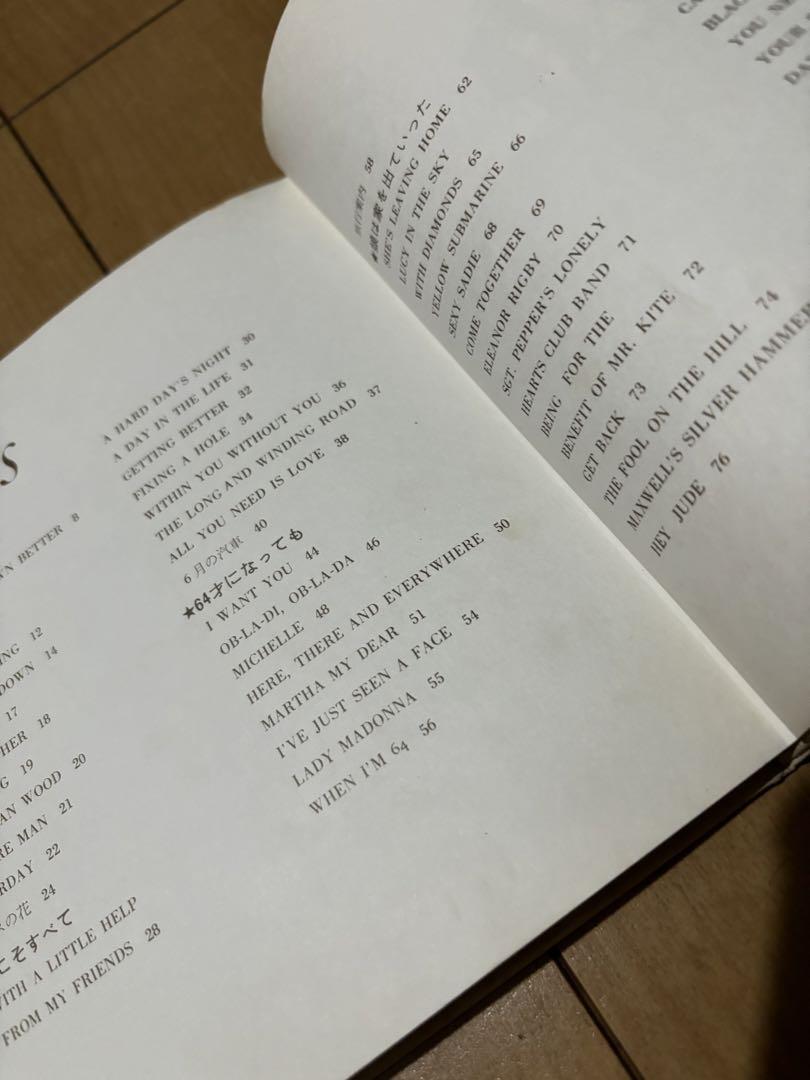 S
N BETTER 8
NG 12
DOWN 14
17
HER 18
G 19
AN WOOD 20
RE MAN 21
RDAY 22
の花 24
こそすべて
WITH A LITTLE HELP
FROM MY FRIENDS 28
A HARD DAY'S NIGHT 30
A DAY IN THE LIFE 31
GETTING BETTER 32
FIXING A HOLE 34
WITHIN YOU WITHOUT YOU 36
THE LONG AND WINDING ROAD 37
ALL YOU NEED IS LOVE 38
6月の汽車 40
★64才になっても
I WANT YOU 44
OB-LA-DI, OB-LA-DA 46
MICHELLE 48
HERE, THERE AND EVERYWHERE 50
MARTHA MY DEAR 51
I'VE JUST SEEN A FACE 54
LADY MADONNA 55
WHEN I'M 64 56
旅行案内 58
★娘は家を出ていった
SHE'S LEAVING HOME 62
LUCY IN THE SKY
WITH DIAMONDS 65
YELLOW SUBMARINE 66
SEXY SADIE 68
COME TOGETHER 69
ELEANOR RIGBY 70
SGT. PEPPER'S LONELY
HEARTS CLUB BAND 71
BEING FOR THE
BENEFIT OF MR. KITE 72
GET BACK 73
THE FOOL ON THE HILL 74
MAXWELL'S SILVER HAMMER
HEY JUDE 76
CA
BLAC
YOU NE
YOUR
DA